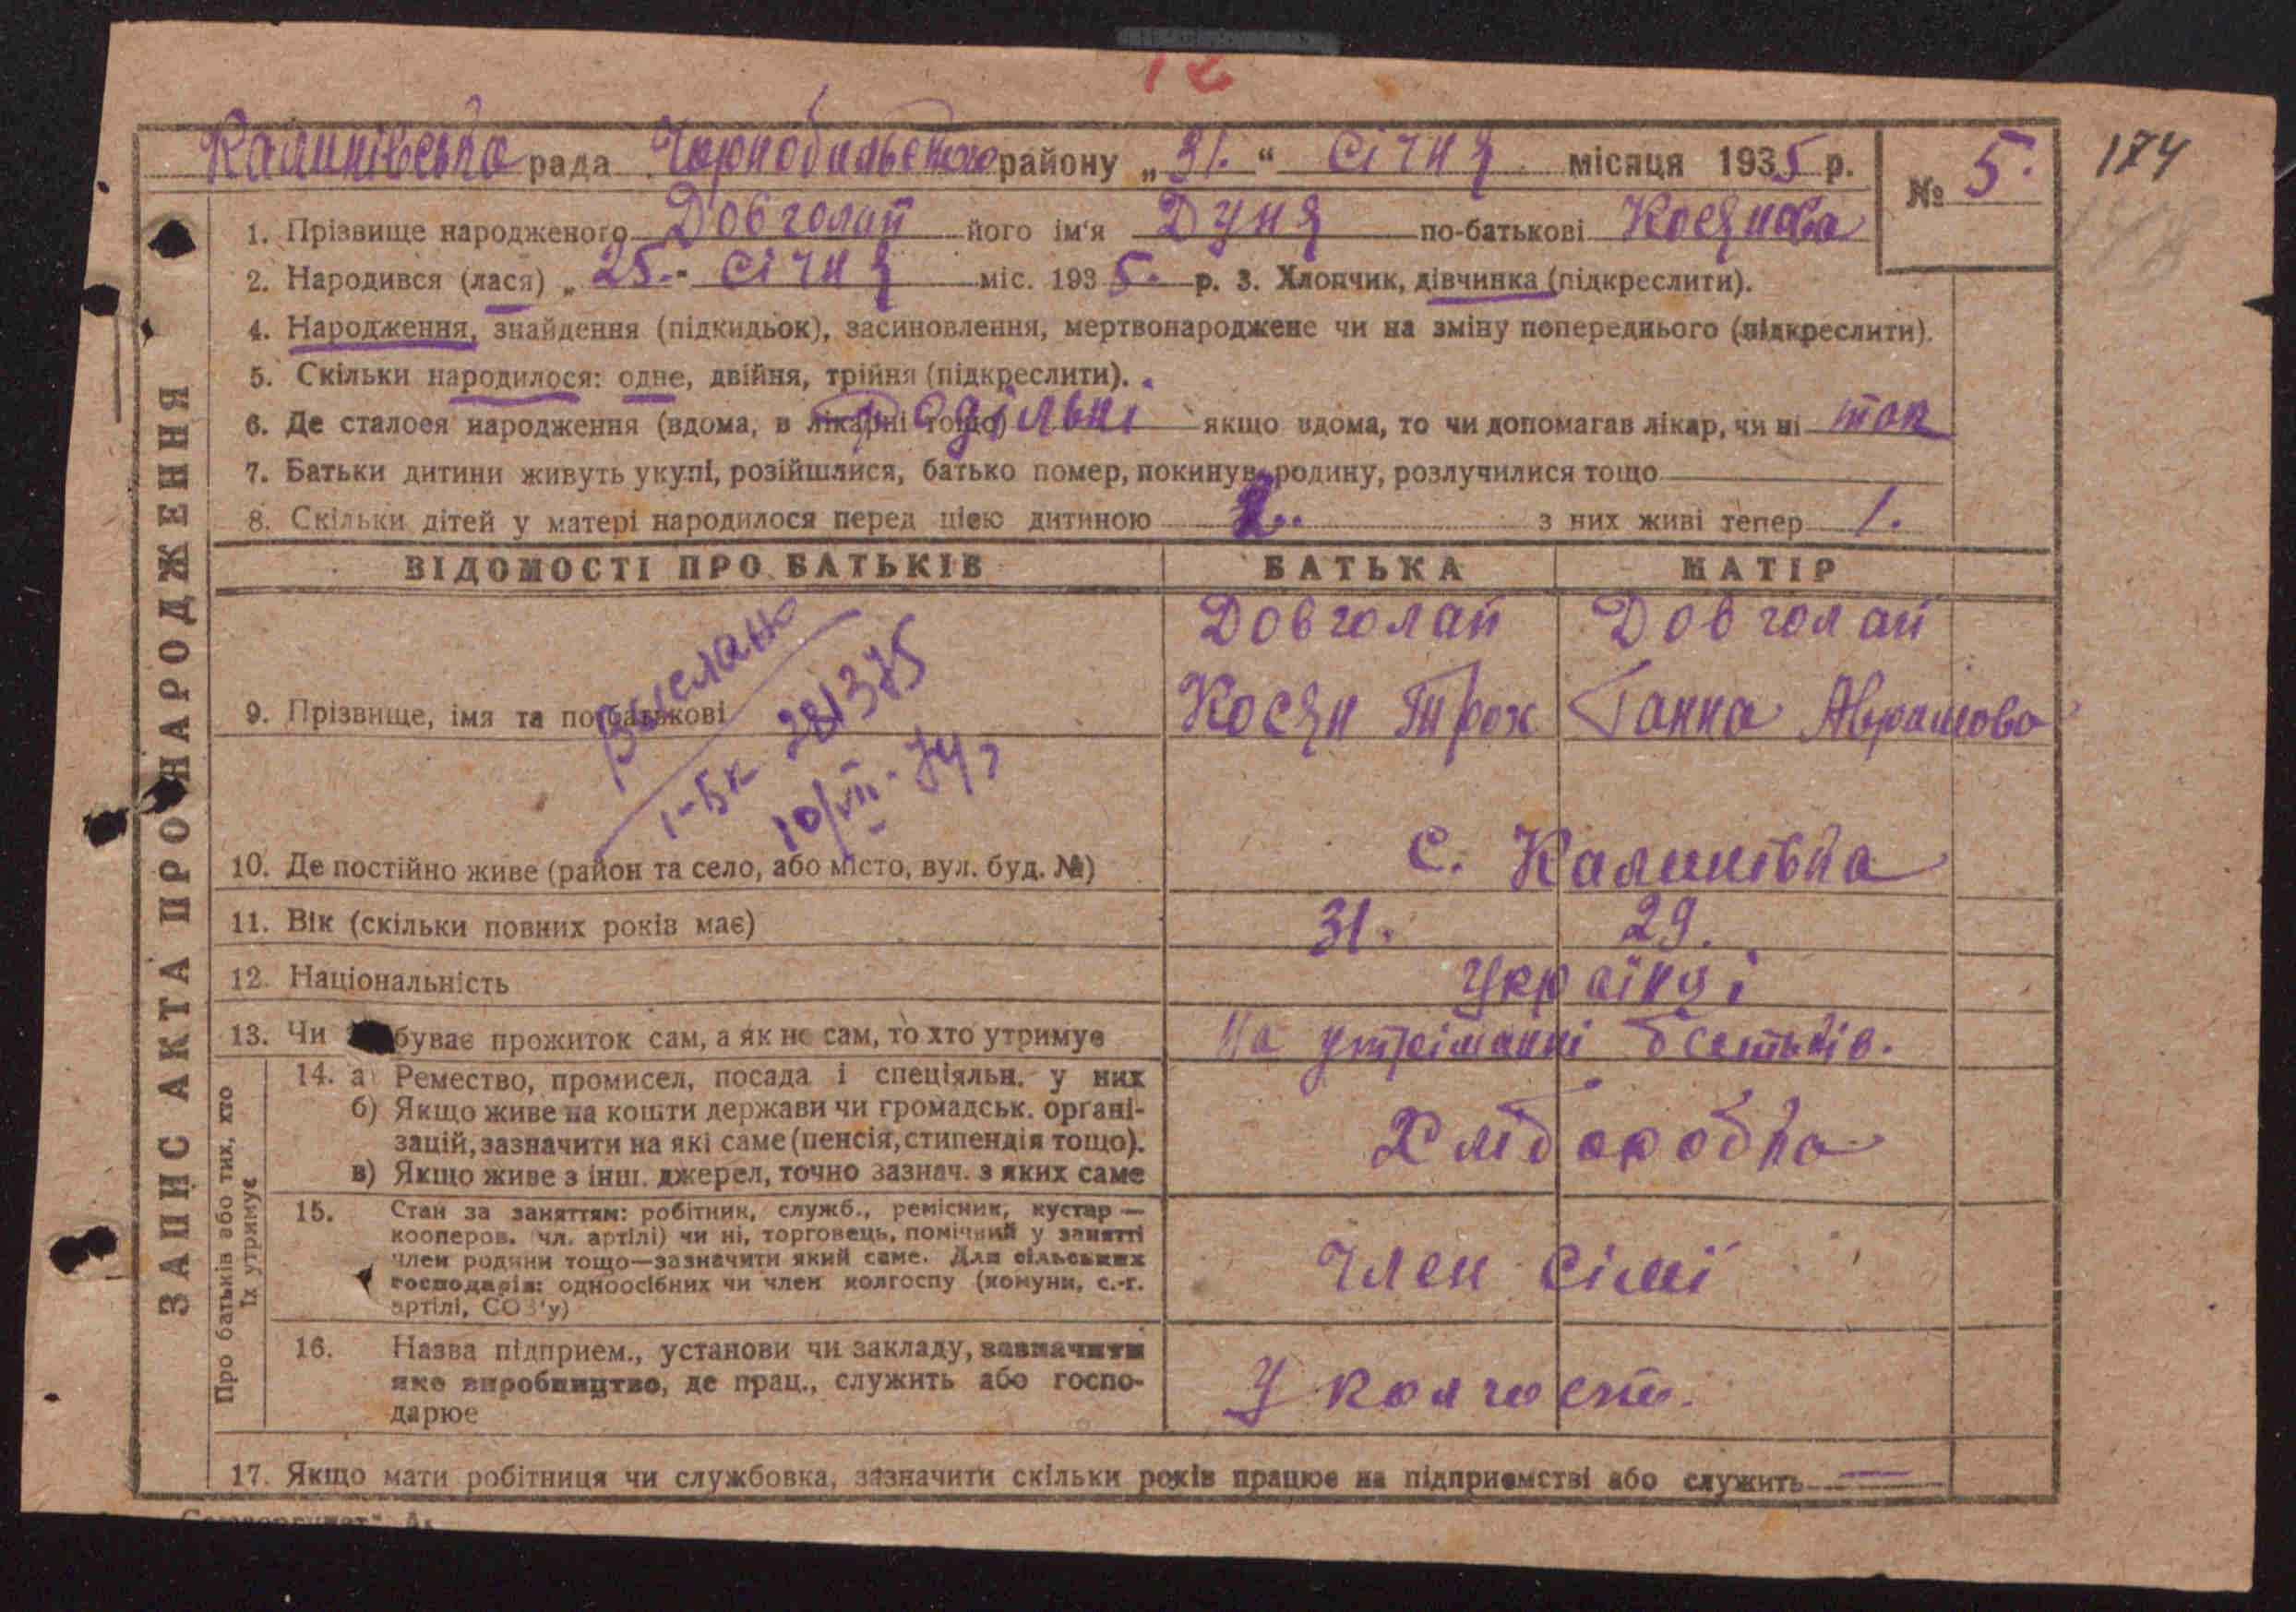 12
Калинівська рада Чорнобильського району „31.“ Січня місяця 1935 р.
№ 5.
174
1. Прізвище народженого Довголап його ім'я Дуня по-батькові Косянова
2. Народився (лася) „25.“ Січня міс. 1935. р. 3. Хлопчик, дівчинка (підкреслити).
4. Народження, знайдення (підкидьок), засиновлення, мертвонароджене чи на зміну попереднього (підкреслити).
5. Скільки народилося: одне, двійня, трійня (підкреслити).
6. Де сталося народження (вдома, в лікарні тощо) родільні якщо вдома, то чи допомагав лікар, чи ні так
7. Батьки дитини живуть укупі, розійшлися, батько помер, покинув родину, розлучилися тощо
8. Скільки дітей у матері народилося перед цією дитиною 2. з них живі тепер 1.
ЗАПИС АКТА ПРО НАРОДЖЕННЯ
ВІДОМОСТІ ПРО БАТЬКІВ БАТЬКА МАТІР
Довголап Довголап
9. Прізвище, імя та по батькові Косян Трох Ганна Аврамова
Выслано
1-БК 281375
10/VII-74г
10. Де постійно живе (район та село, або місто, вул. буд. №) с. Калинівка
11. Вік (скільки повних років має) 31. 29.
12. Національність Українці
13. Чи буває прожиток сам, а як не сам, то хто утримує На утріманні батьків.
Про батьків або тих, хто їх утримує
14. а) Ремество, промисел, посада і спеціяльн. у них
б) Якщо живе на кошти держави чи громадськ. органі-
зацій, зазначити на які саме (пенсія, стипендія тощо).
в) Якщо живе з інш. джерел, точно зазнач. з яких саме
Хліборобка
15. Стан за заняттям: робітник, служб., ремісник, кустар —
кооперов. (чл. артілі) чи ні, торговець, помічний у занятті
член родини тощо—зазначити який саме. Для сільських
господарів: одноосібних чи член колгоспу (комуни, с.-г.
артілі, СОЗ'у)
Член сімї
16. Назва підприєм., установи чи закладу, зазначити
яке виробництво, де прац., служить або госпо-
дарює
У колгосп.
17. Якщо мати робітниця чи службовка, зазначити скільки років працює на підприємстві або служить —